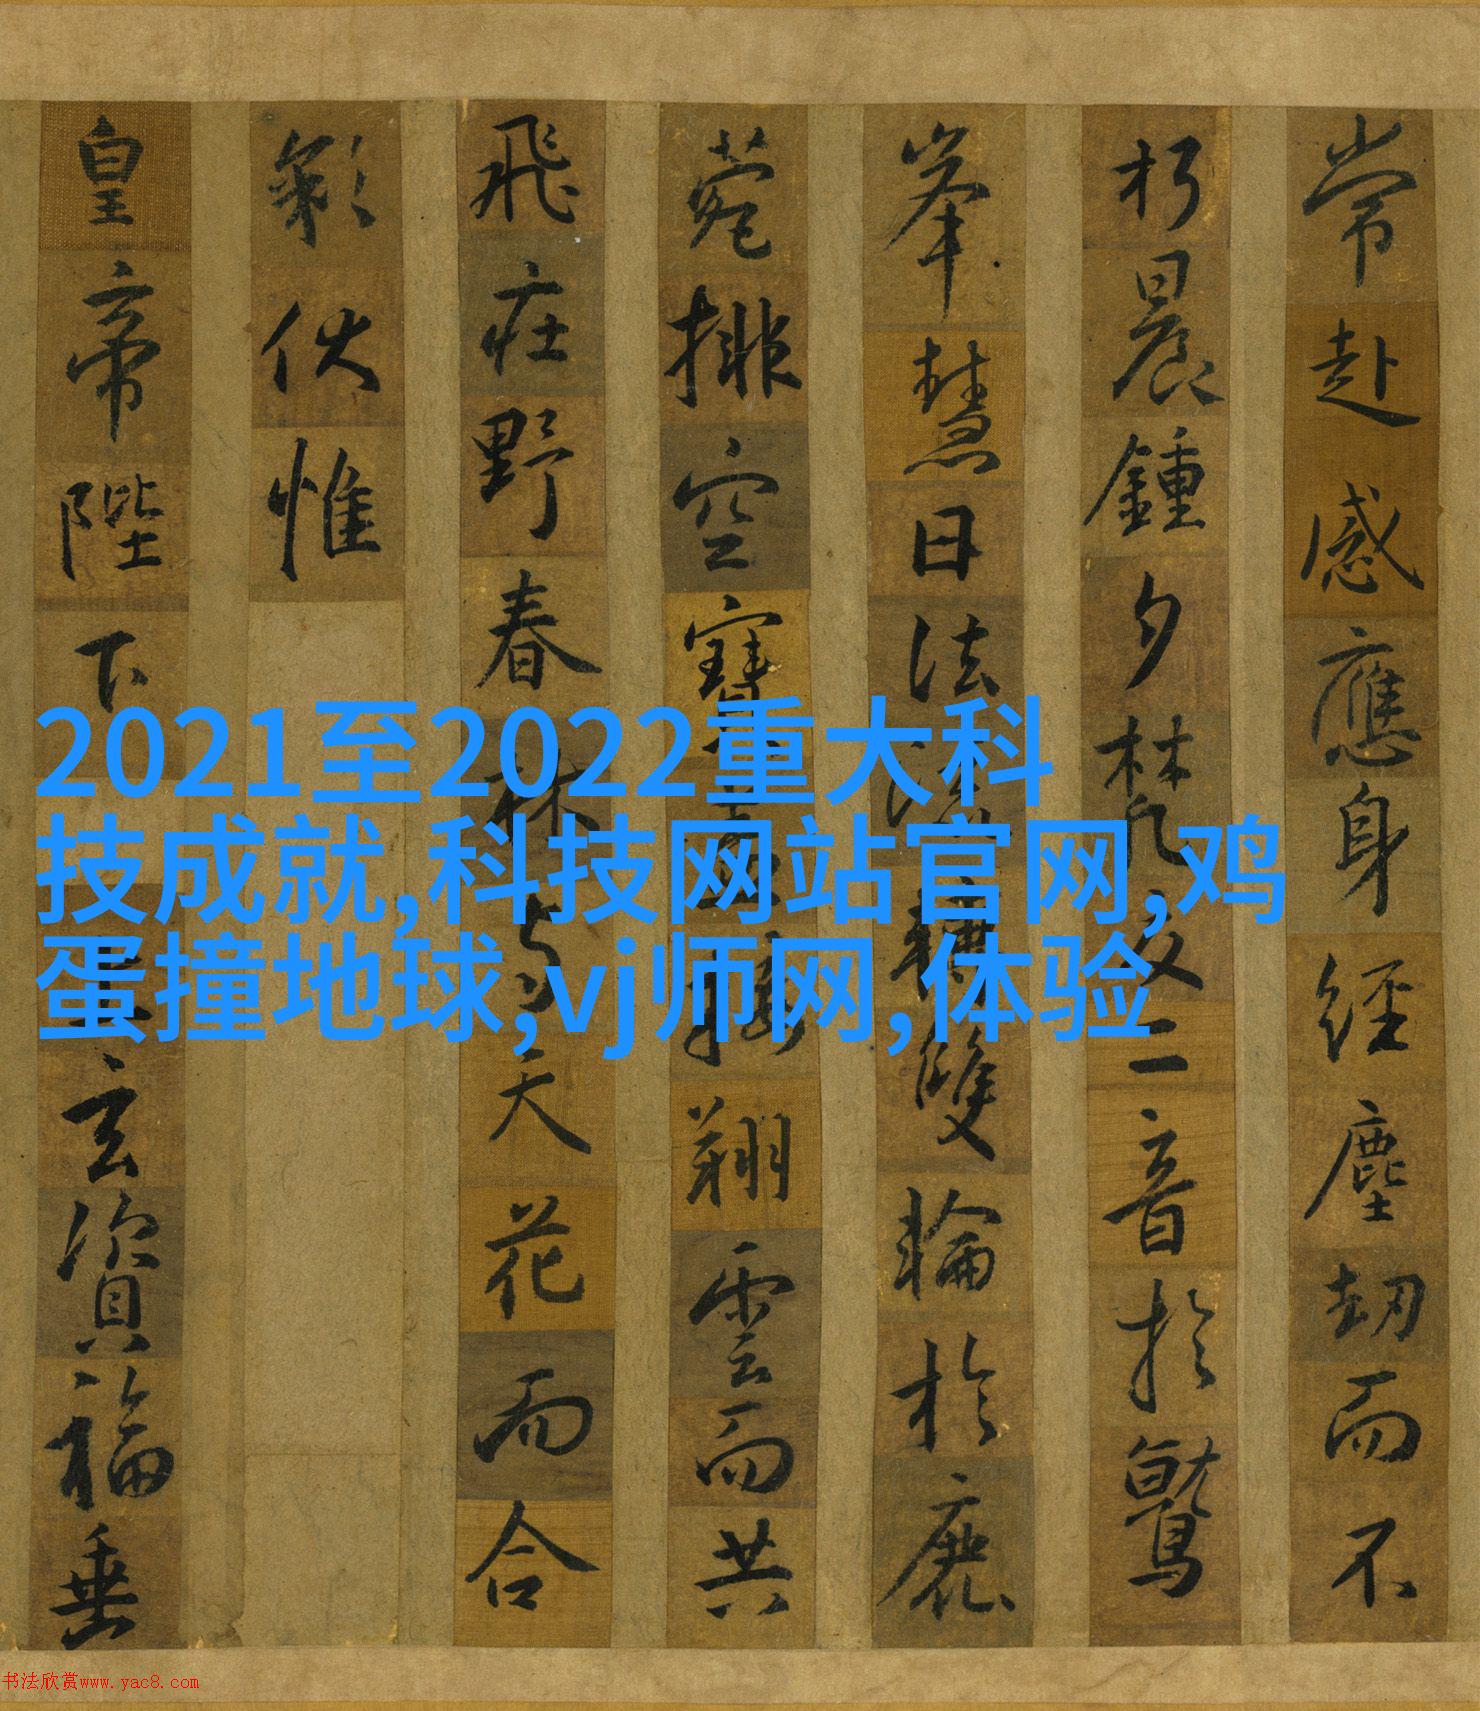 常赴感應身經塵劫而不
朽晨鍾夕梵交二音於鷲
峯慧日法流轉雙輪於鹿
菀排空寶蓋接翔雲而共
飛莊野春林與天花而合
彩伏惟
皇帝陛下上玄資福垂
2021至2022重大科
技成就,科技网站官网,鸡
蛋撞地球,vj师网,体验
书法欣赏www.yac8.com